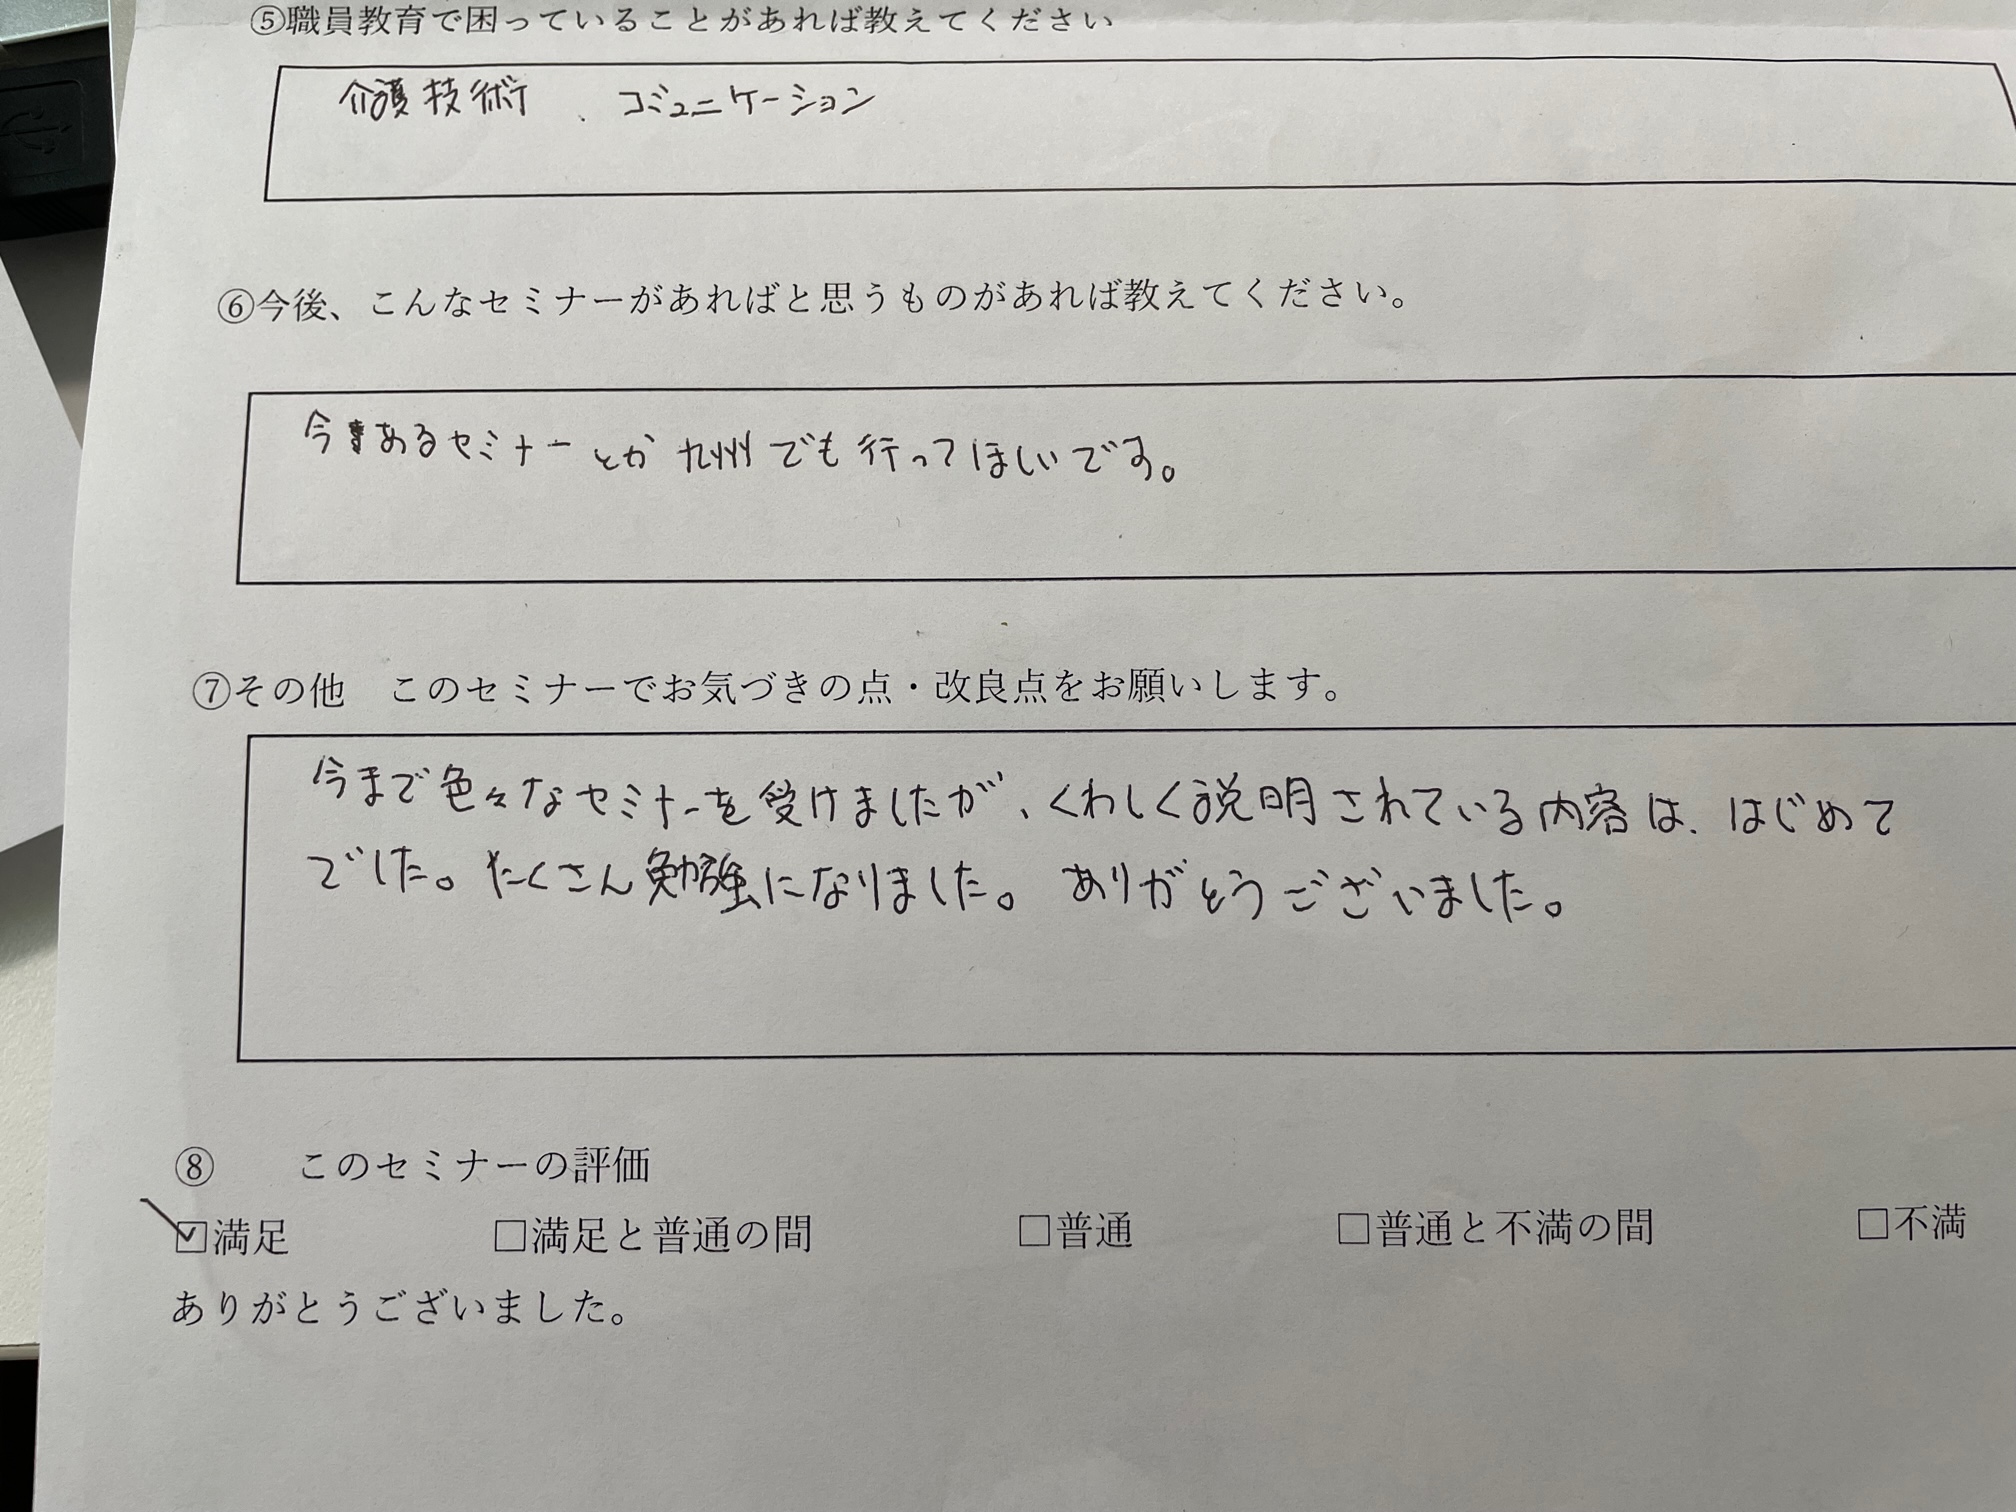 ⑤職員教育で困っていることがあれば教えてください
介護技術、コミュニケーション
⑥今後、こんなセミナーがあればと思うものがあれば教えてください。
今あるセミナーとか九州でも行ってほしいです。
⑦その他　このセミナーでお気づきの点・改良点をお願いします。
今まで色々なセミナーを受けましたが、くわしく説明されている内容は、はじめて
でした。たくさん勉強になりました。ありがとうございました。
⑧　このセミナーの評価
☑満足　□満足と普通の間　□普通　□普通と不満の間　□不満
ありがとうございました。